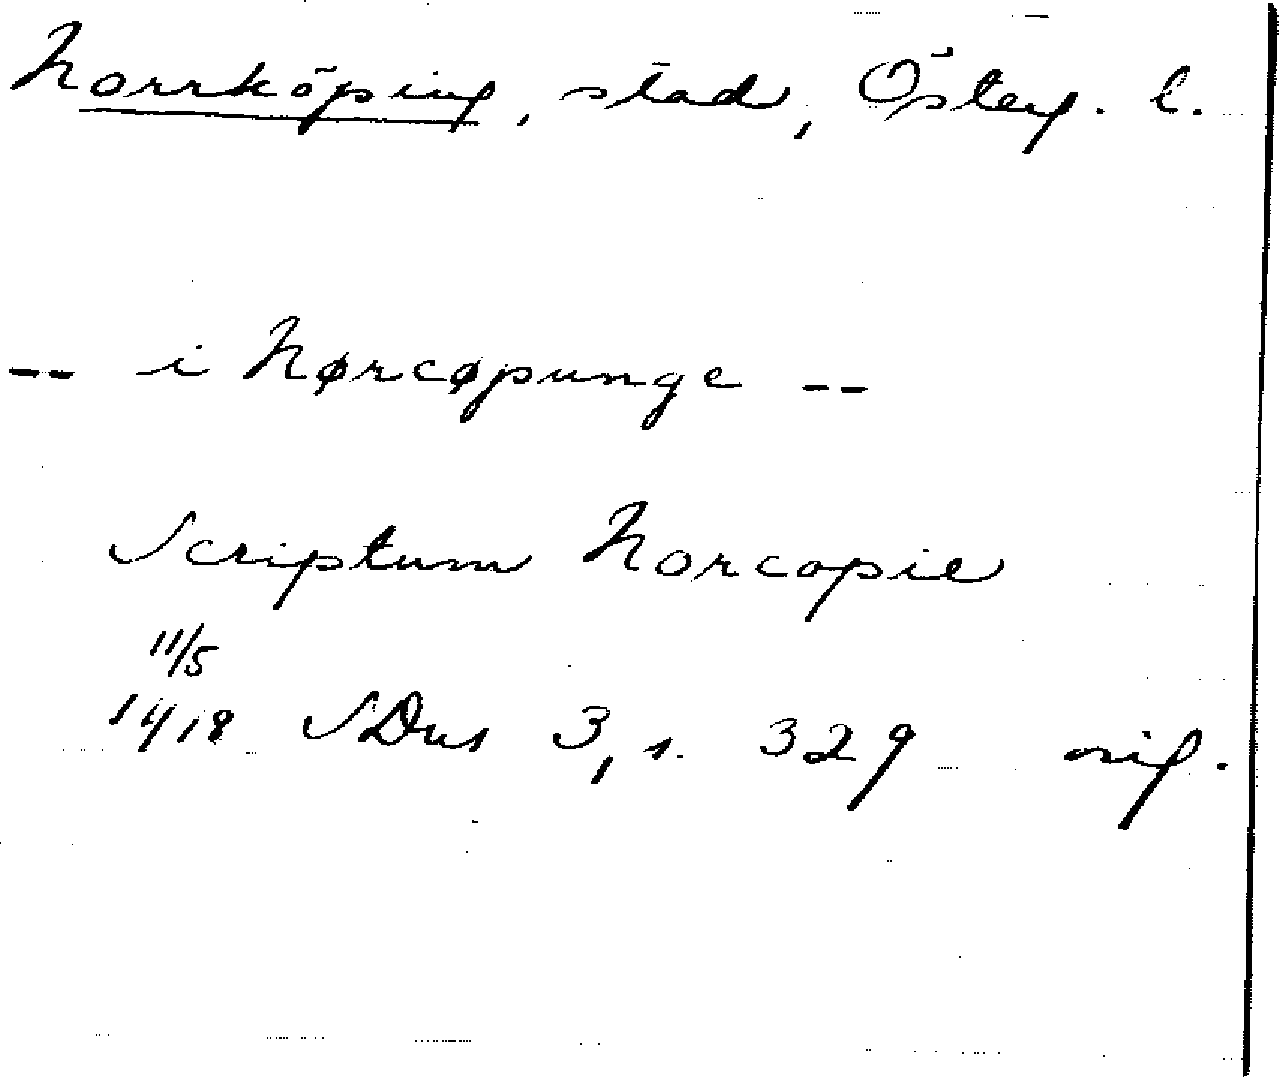 Norrköping, stad, Österg. l.
-- i Nørcøpunge --
Scriptum Norcopie
11/5
1418 SDns 3, s. 329 orig.